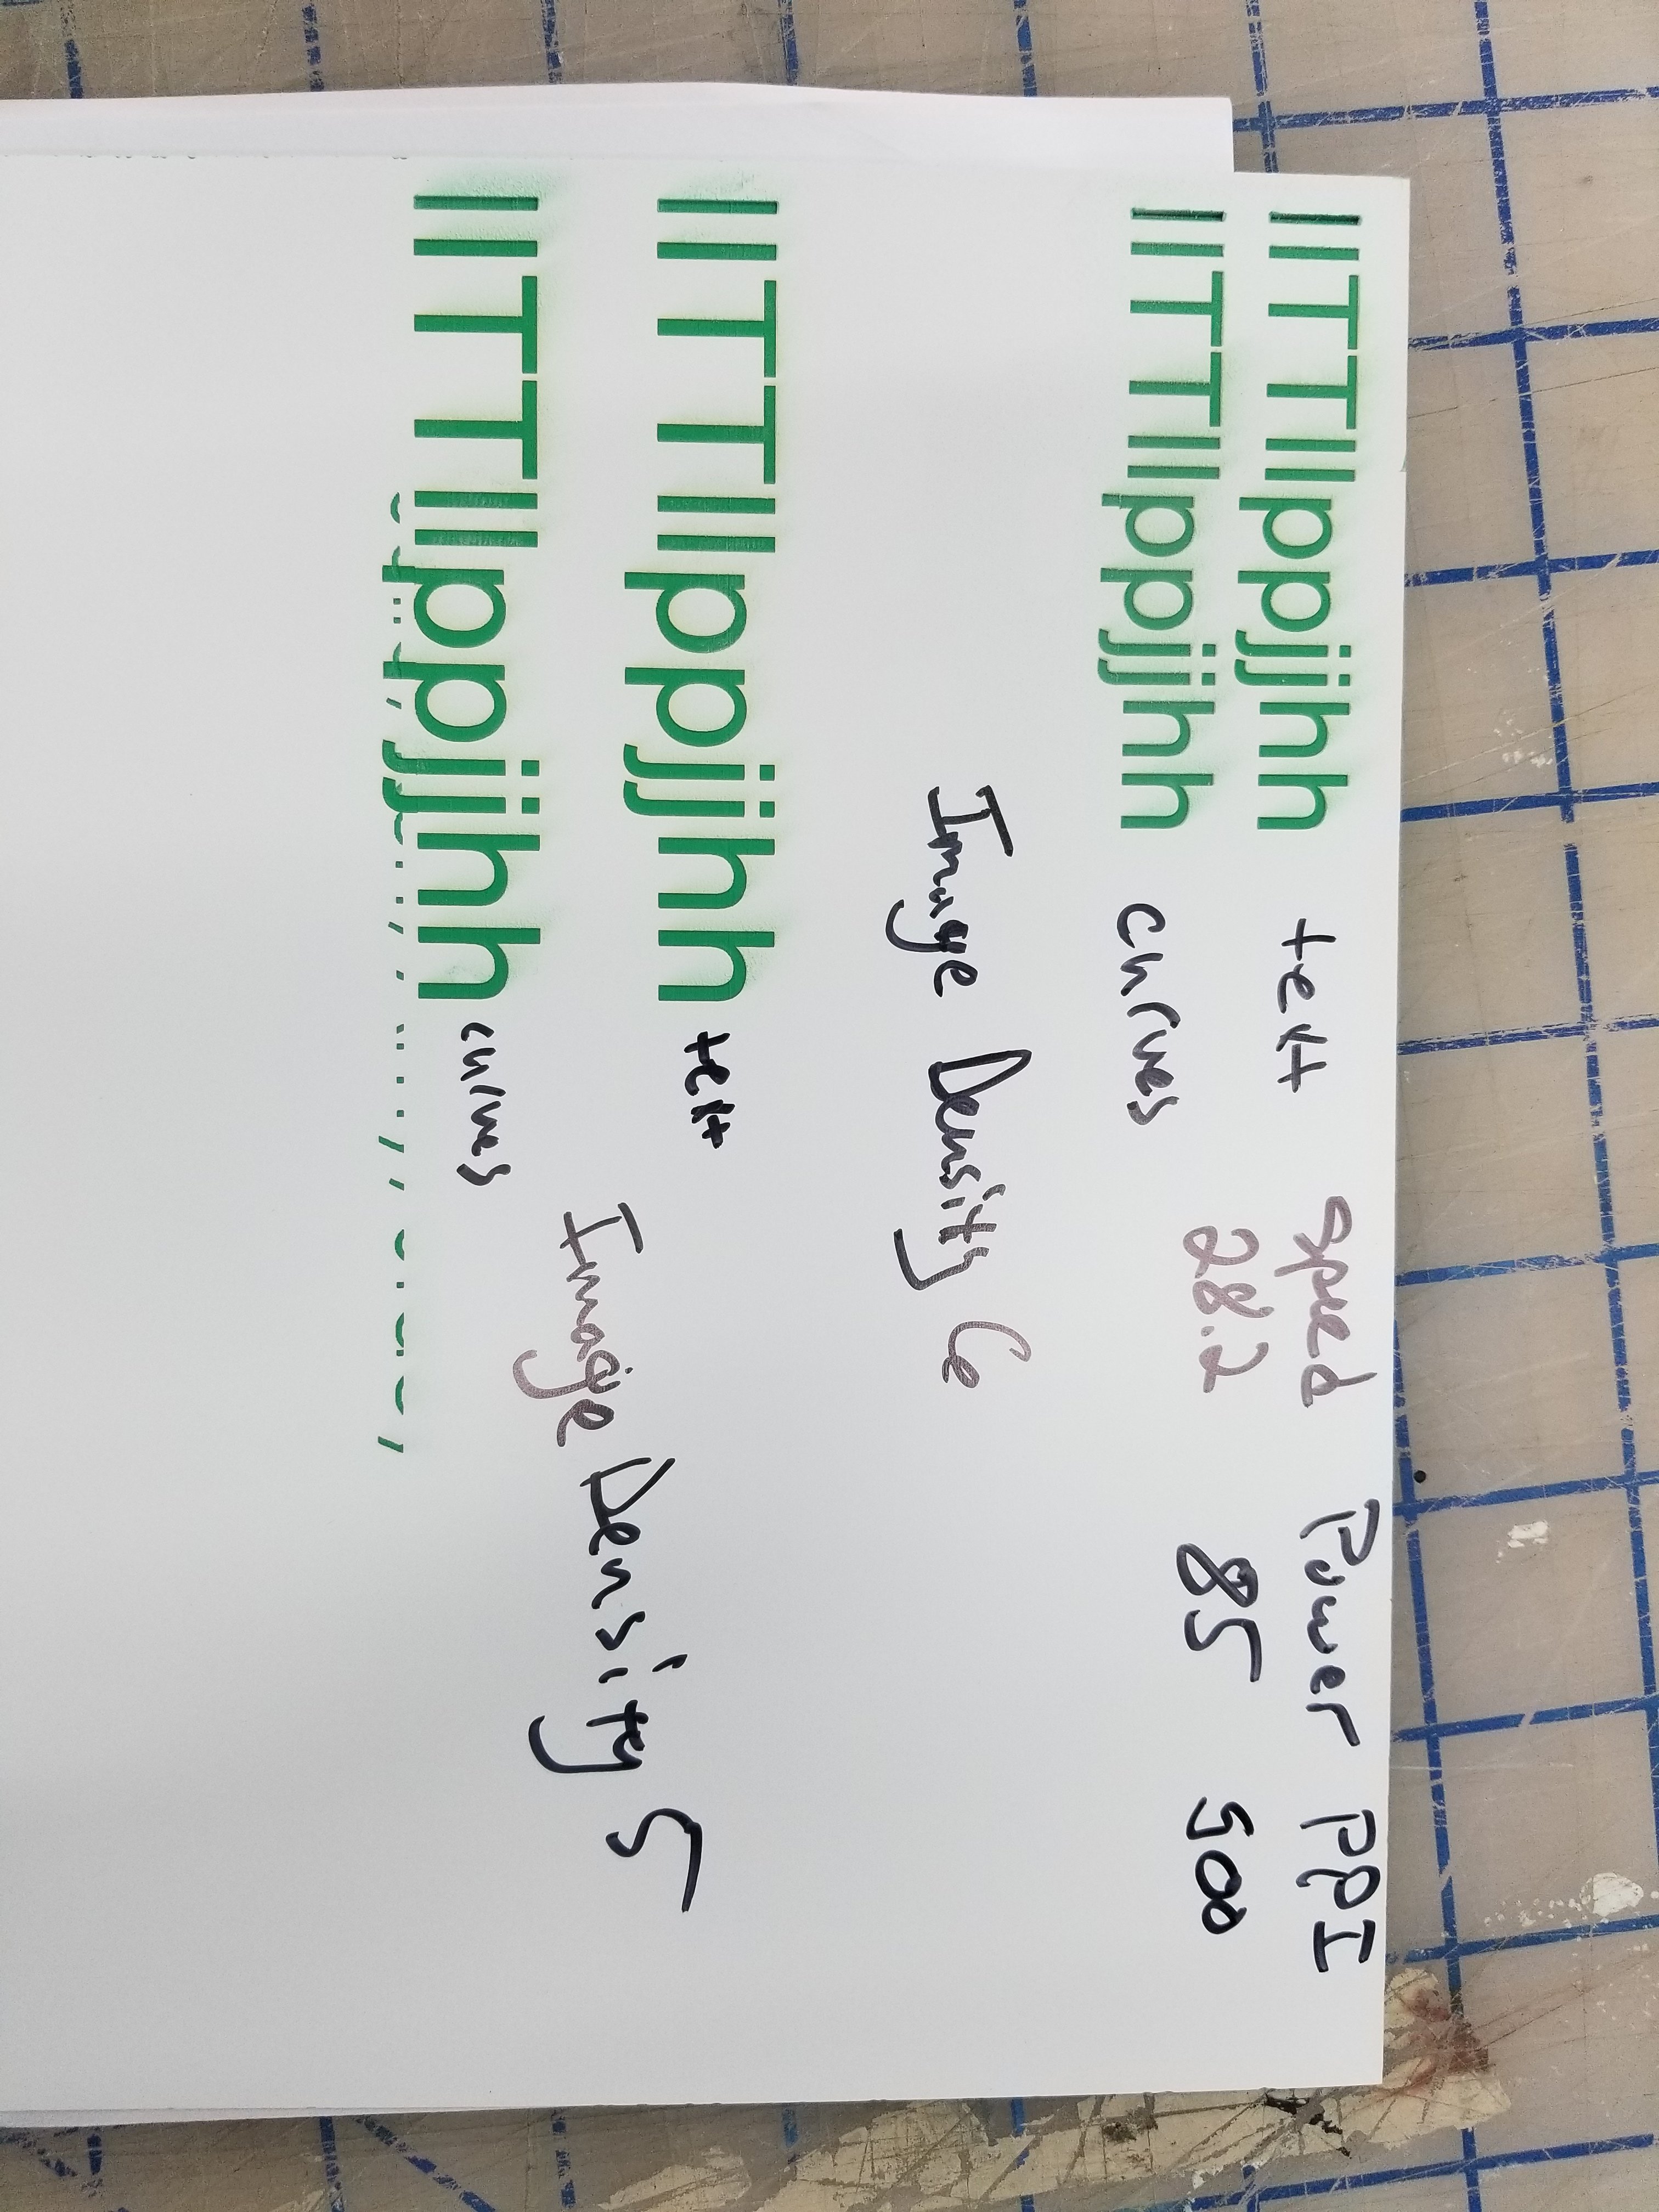 IITTllppjjhh text Speed Power PPI
IITTllppjjhh curves 28.2 85 500
Image Density 6
IITTllppjjhh text
Image Density 5
IITTllppjjhh curves